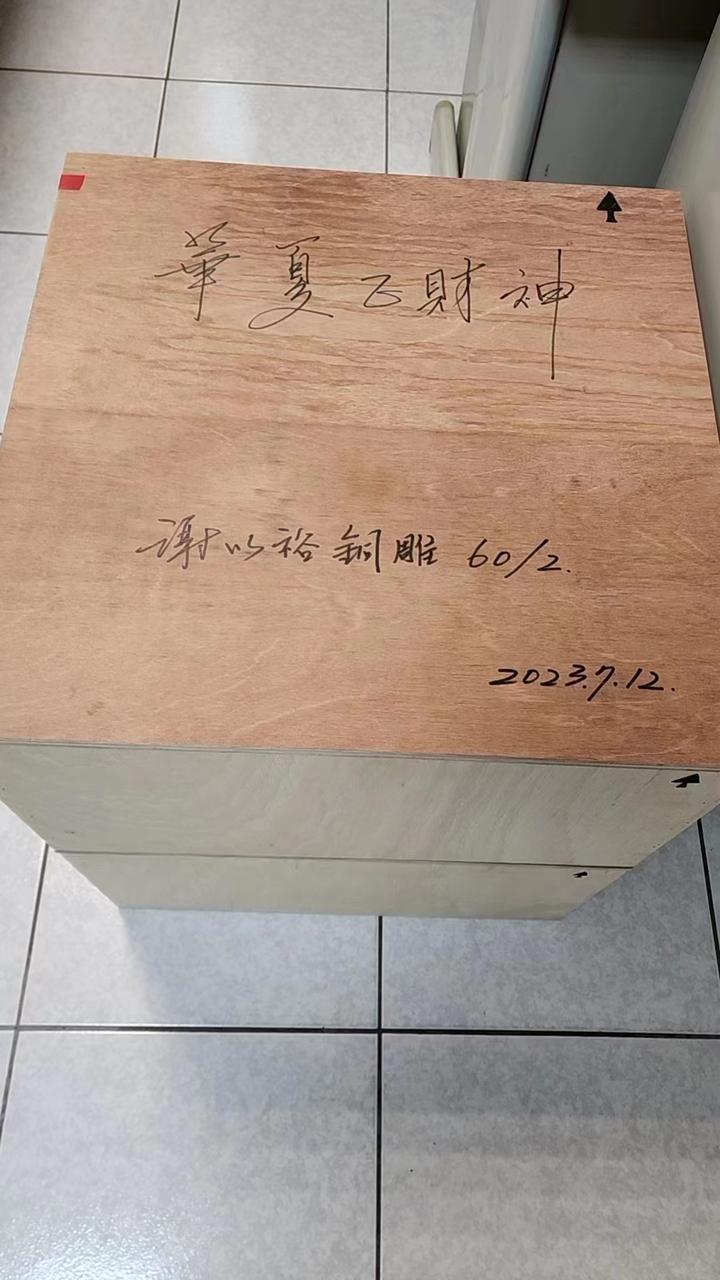 華夏正財神
謝以裕銅雕 60/2.
2023.7.12.